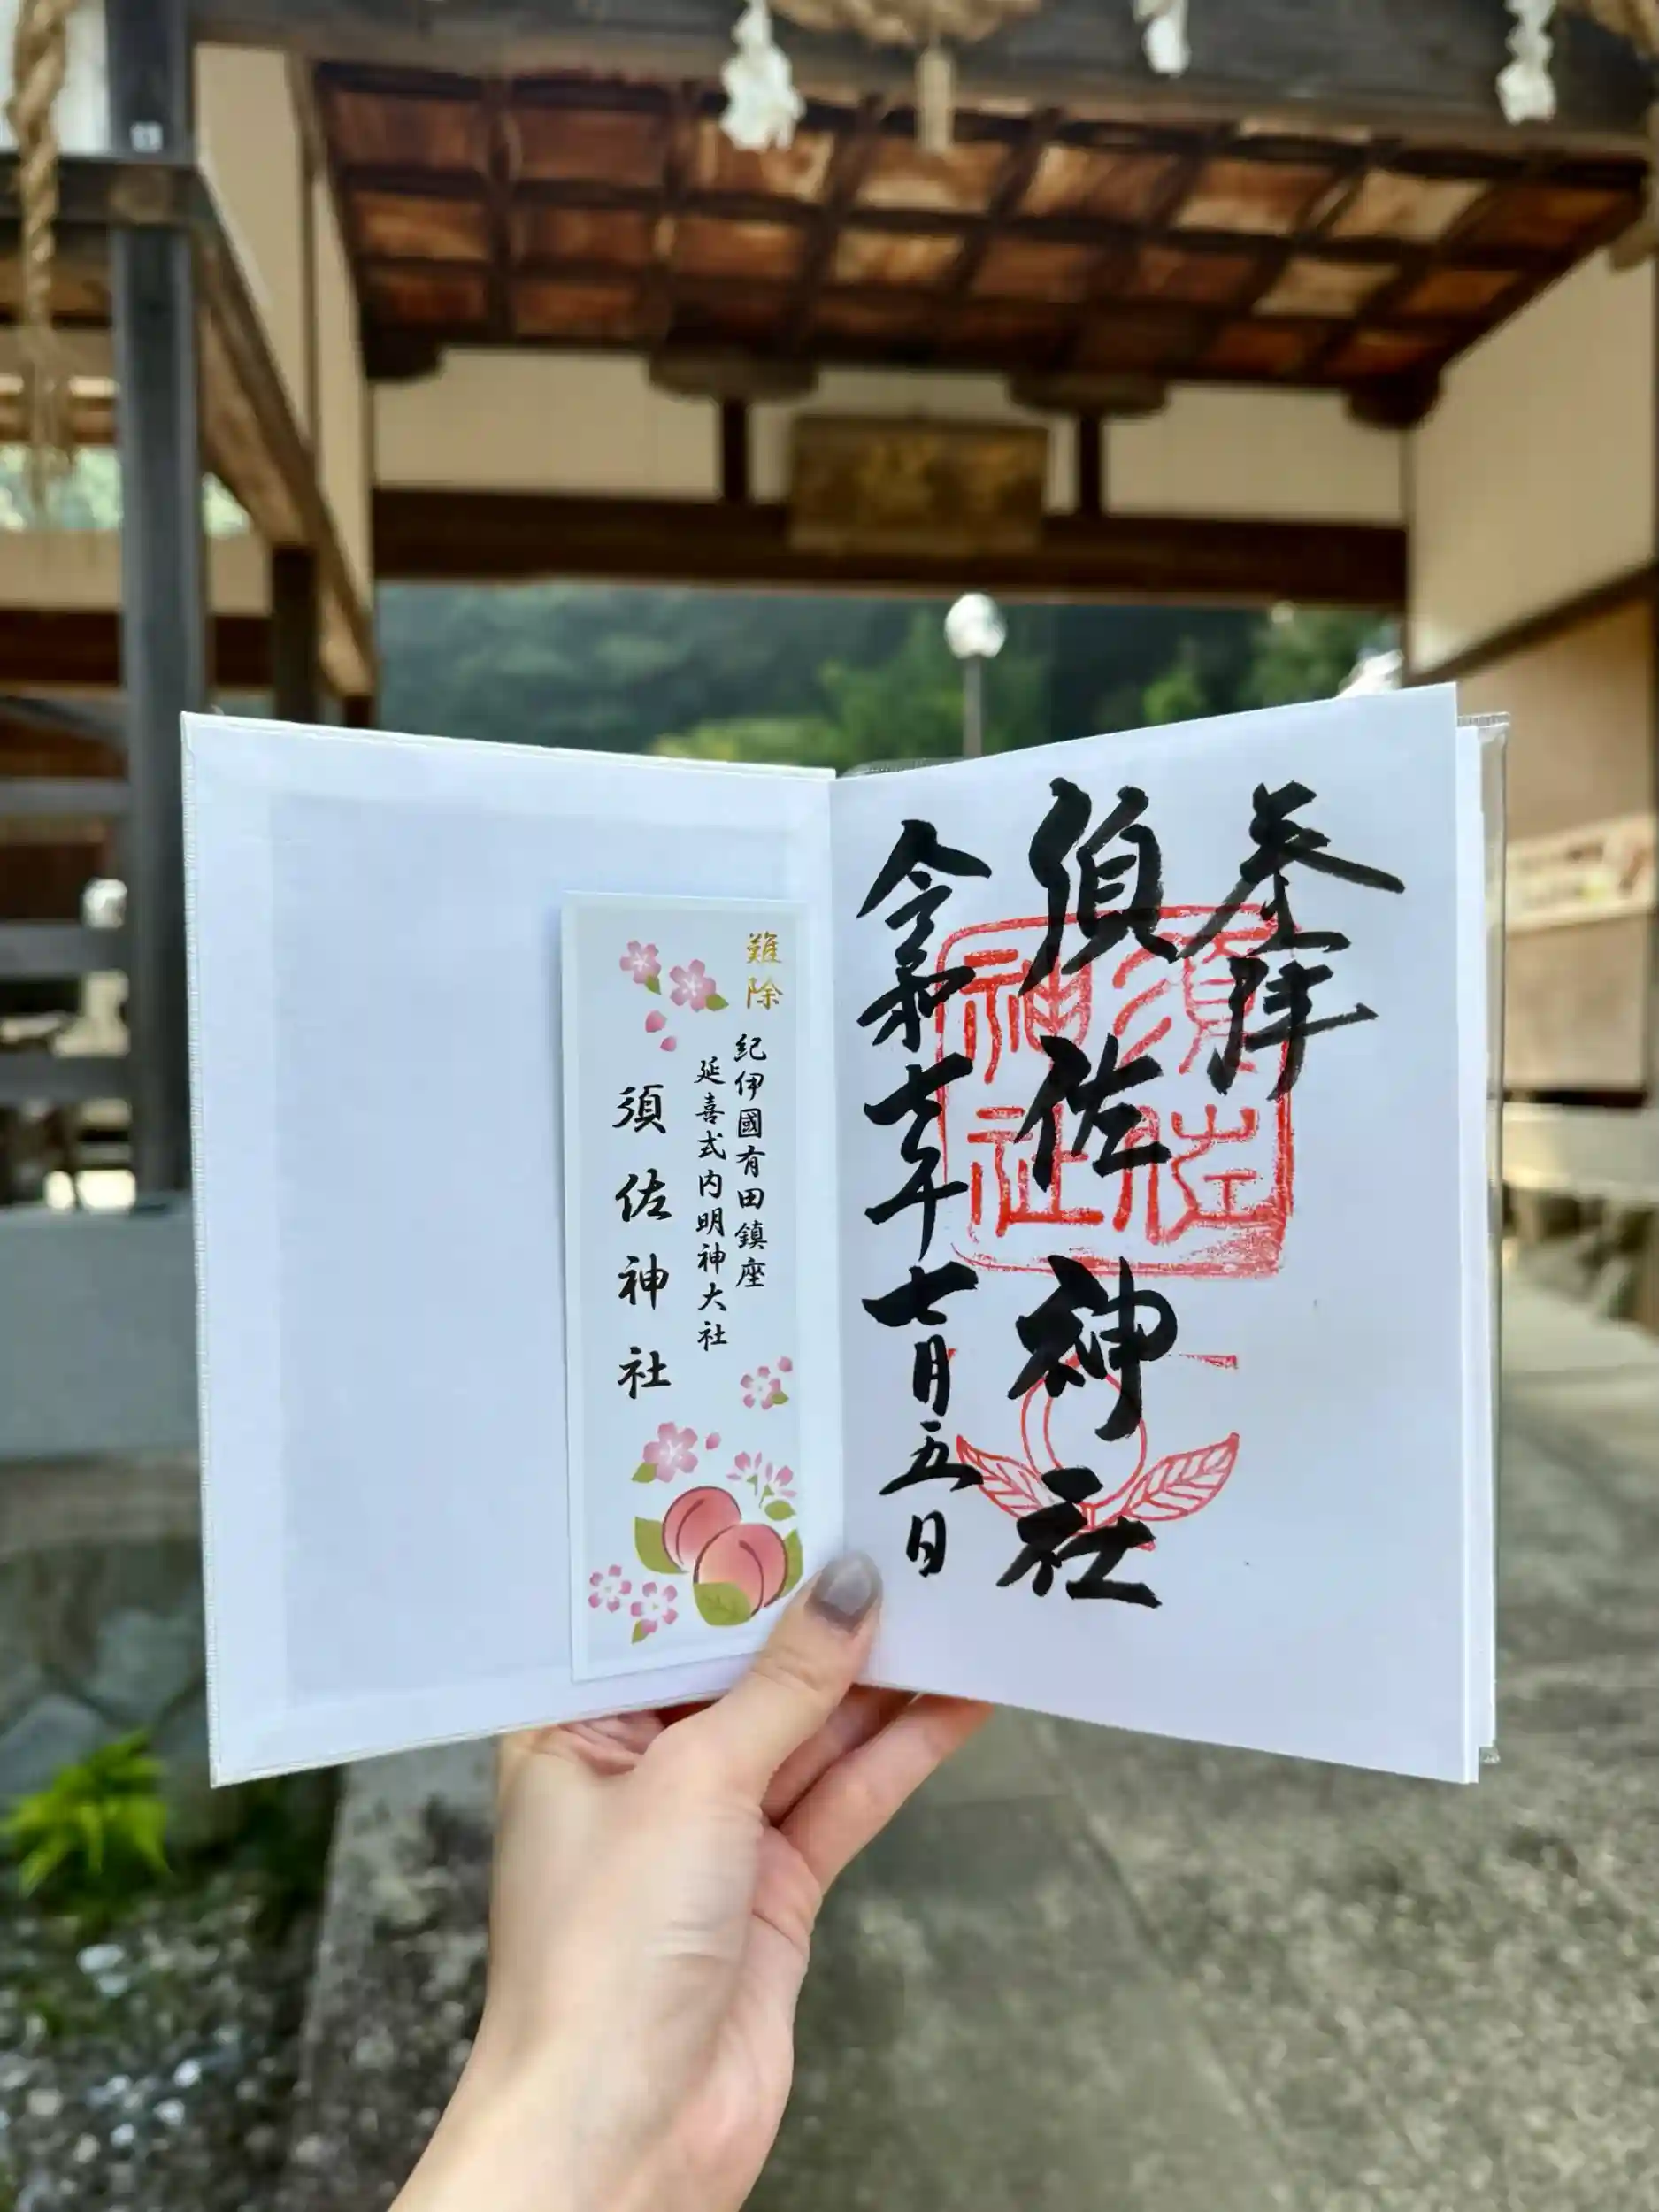 参拝
須佐神社
令和七年七月五日
須佐
神社
難除
紀伊國有田鎮座
延喜式内明神大社
須佐神社